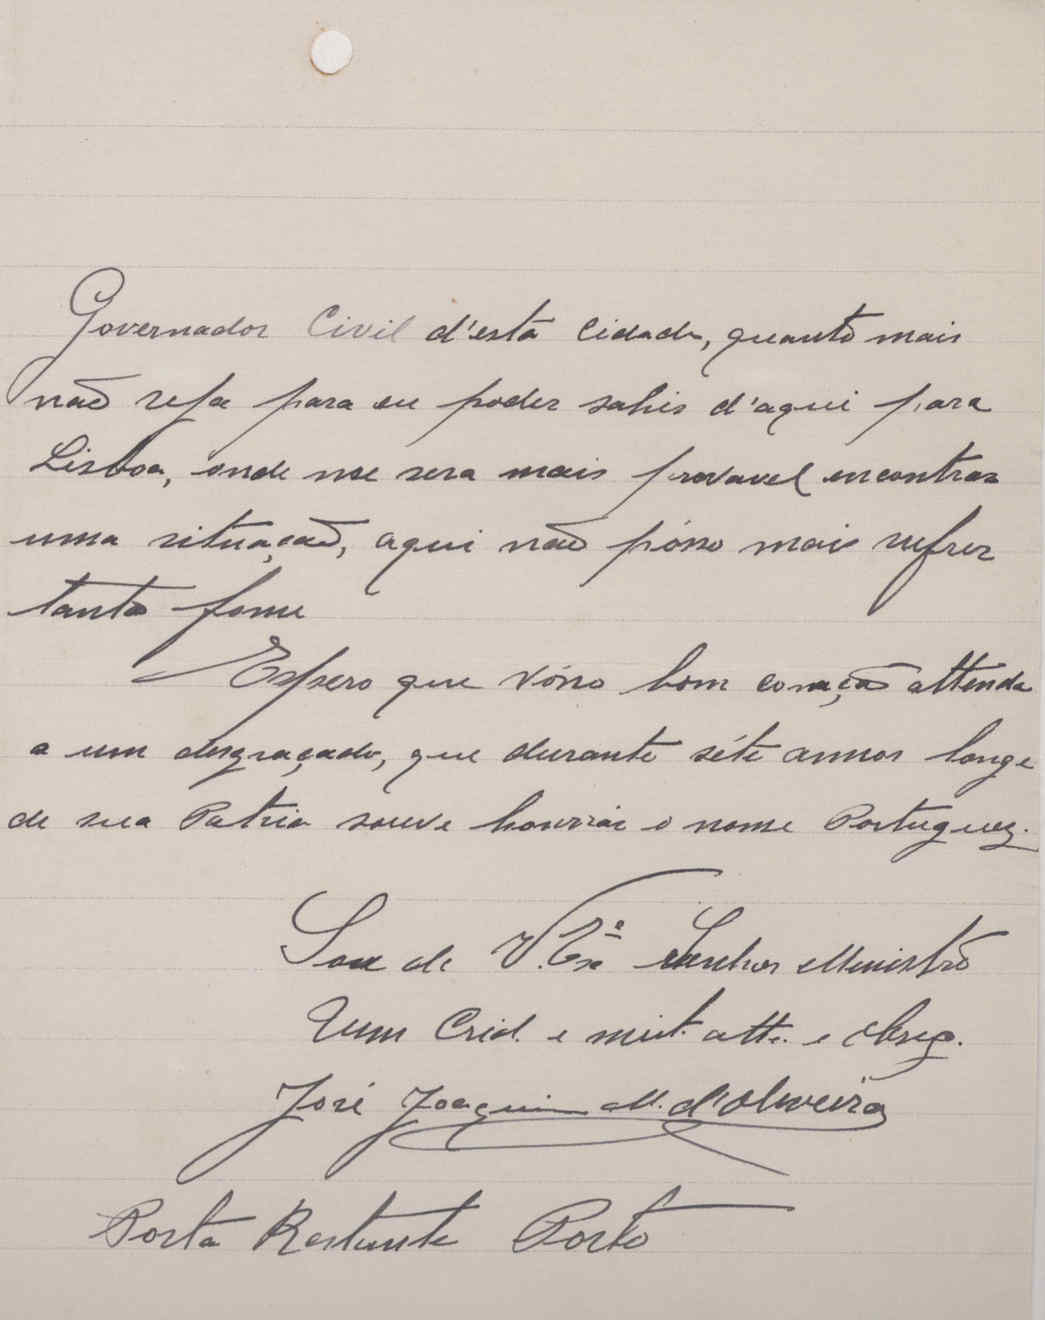 Governador Civil d'esta Cidade, quanto mais
não seja para eu poder sahir d'aqui para
Lisboa, onde me sera mais provavel encontrar
uma situação, aqui não pósso mais sufrer
tanta fome
Espero que vósso bom coração attenda
a um desgraçado, que durante séte annos longe
de sua Patria souve honrrar o nome Portuguez.
Sou de V. Exª Senhor Ministro
Um Crid. e muit. atte. e obrig.
José Joaquim M. d'Oliveira
Posta Restante Porto